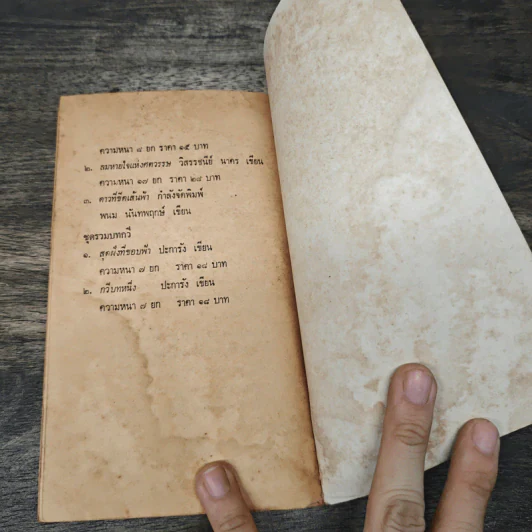 ความหนา ๘ ยก ราคา ๑๕ บาท
๒. ลมหายใจแห่งศตวรรษ วิสรรชนีย์ นาคร เขียน
ความหนา ๑๗ ยก ราคา ๒๘ บาท
๓. ดาวที่ขีดเส้นฟ้า กำลังจัดพิมพ์
พนม นันทพฤกษ์ เขียน
ชุดรวมบทกวี
๑. สุดฝั่งที่ขอบฟ้า ปะการัง เขียน
ความหนา ๗ ยก ราคา ๑๘ บาท
๒. กวีบทหนึ่ง ปะการัง เขียน
ความหนา ๗ ยก ราคา ๑๘ บาท